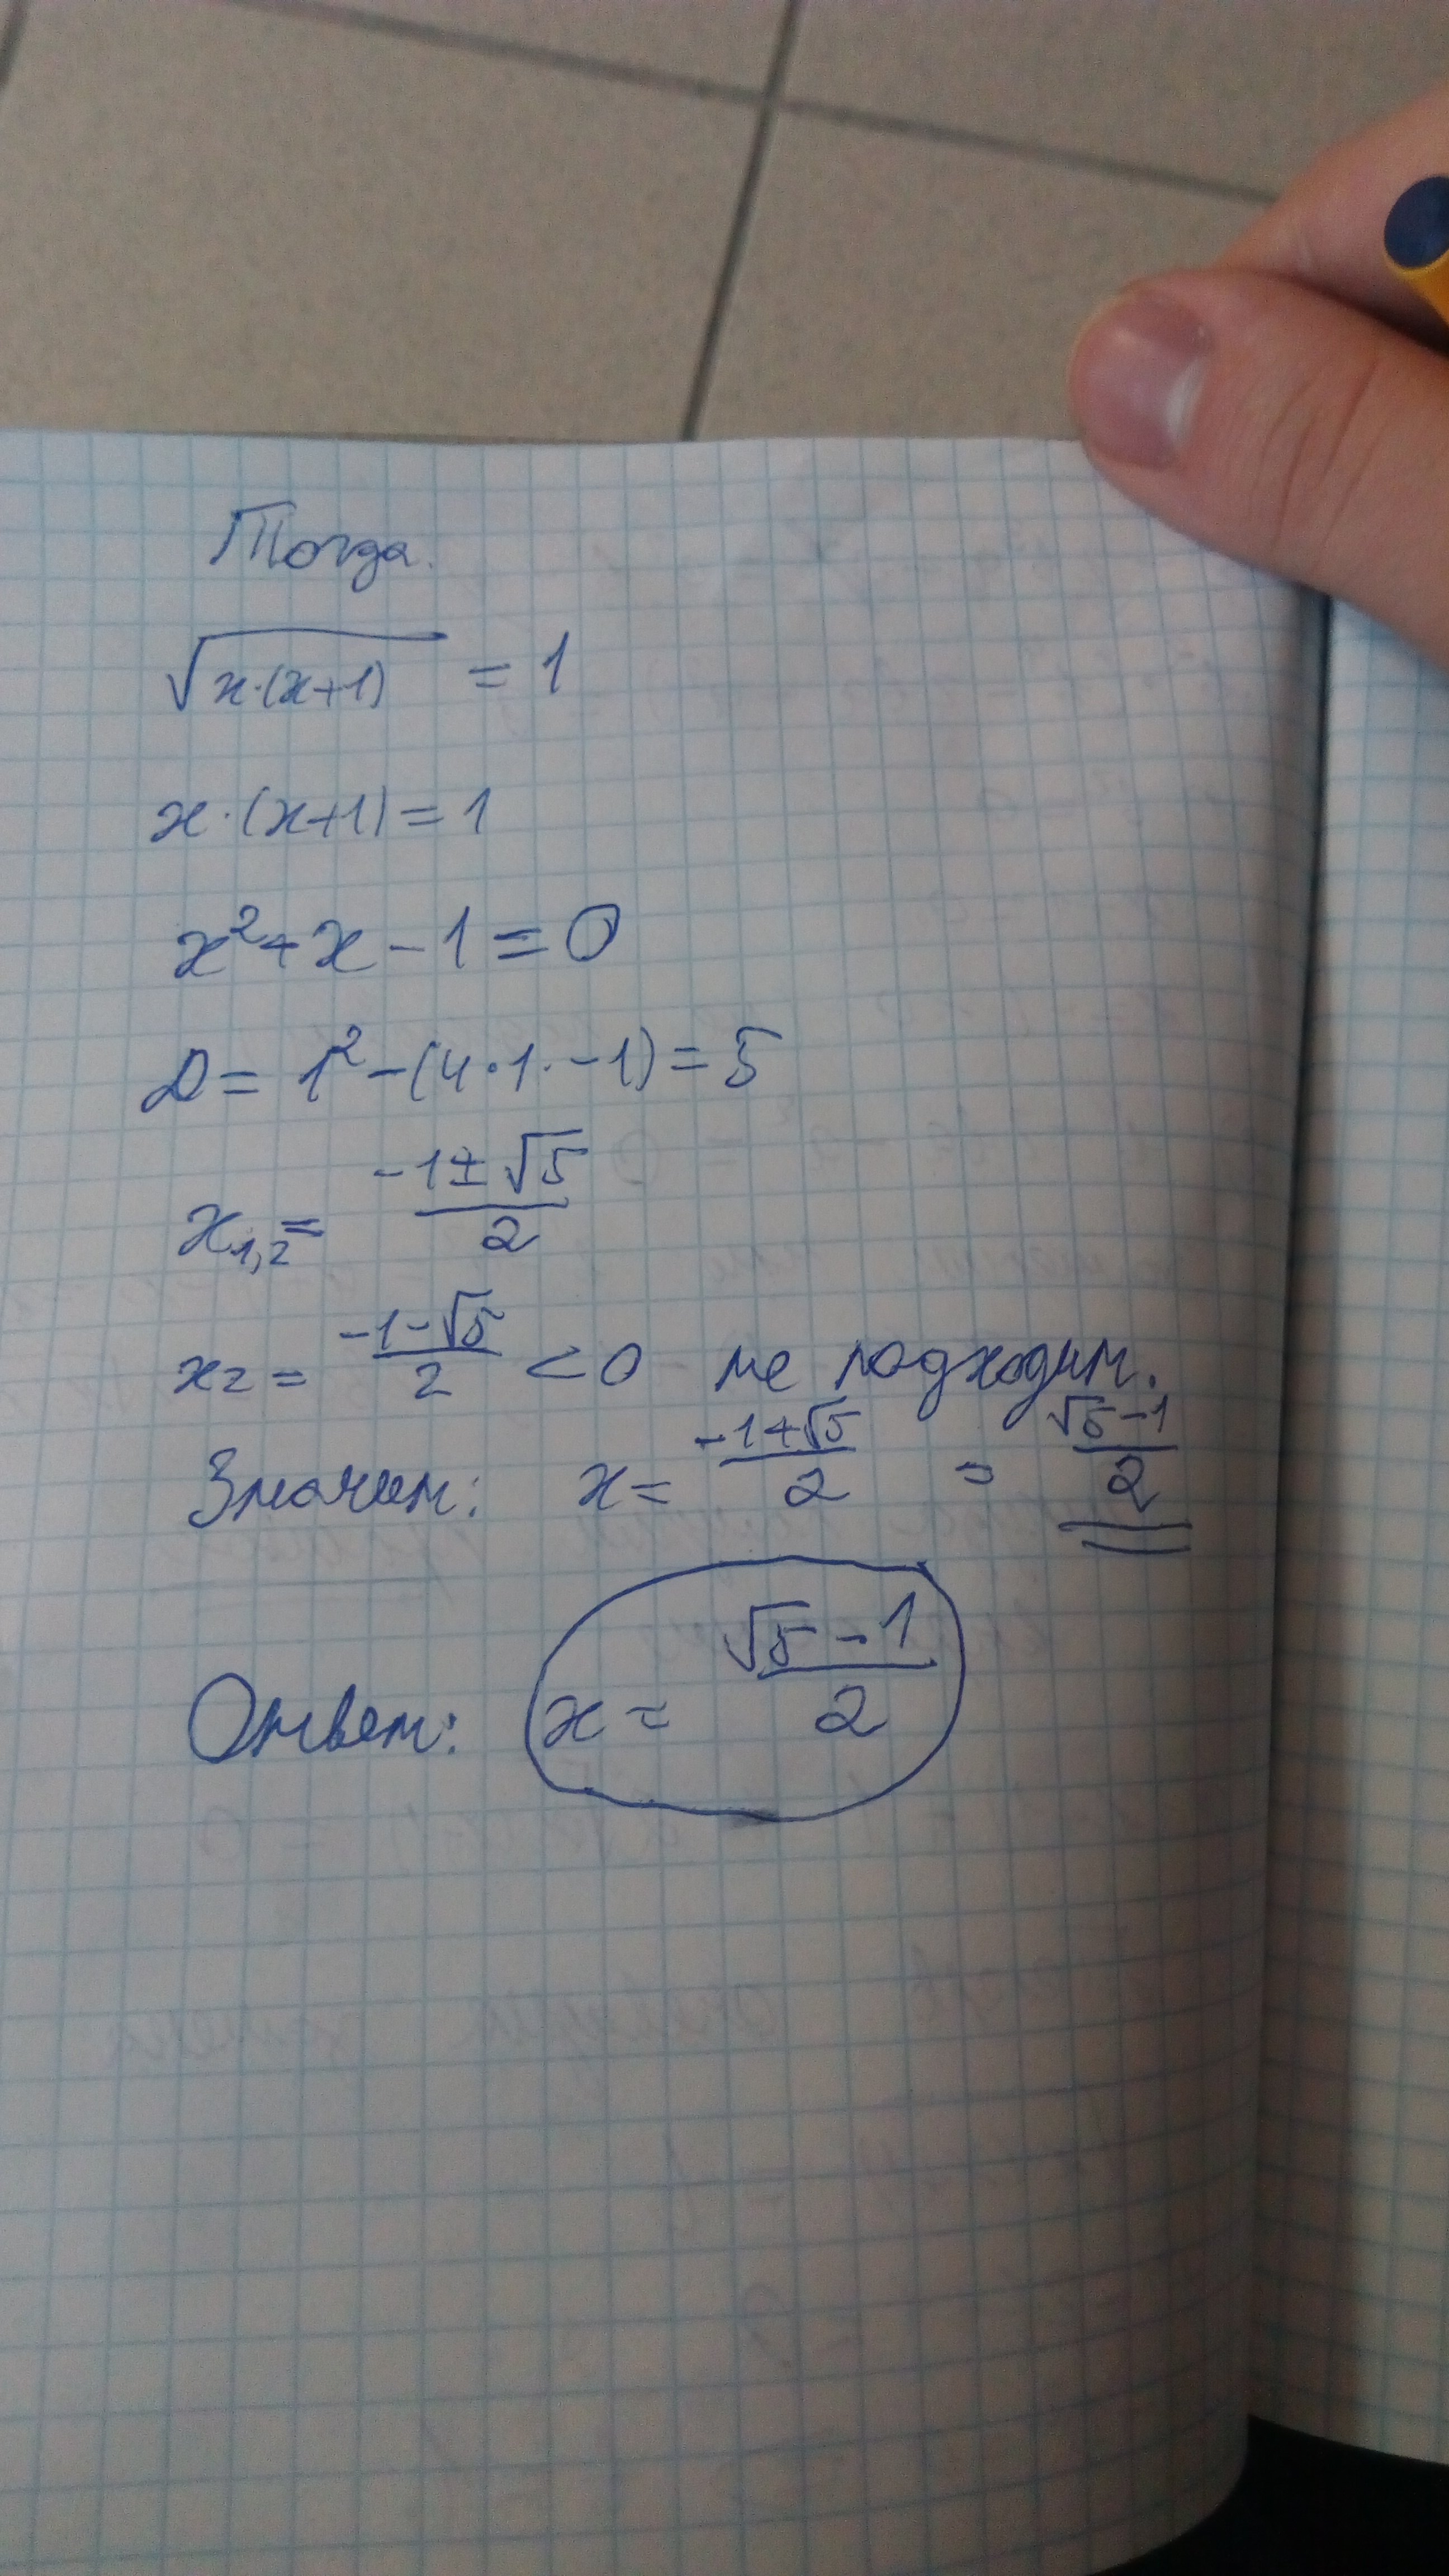 Тогда.
√(x·(x+1)) = 1
x·(x+1) = 1
x² + x − 1 = 0
D = 1² − (4·1·−1) = 5
x₁,₂ = (−1 ± √5)/2
x₂ = (−1 − √5)/2 < 0 не подходит.
Значит: x = (−1 + √5)/2 = (√5 − 1)/2
Ответ: x = (√5 − 1)/2